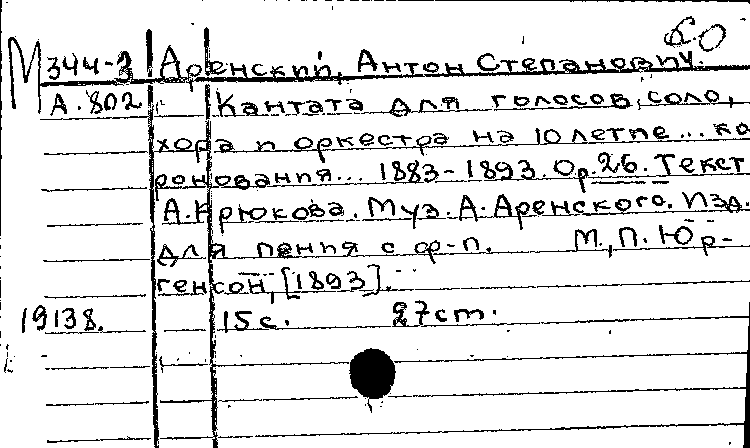 60
М 344-3 Аренский, Антон Степанович.
А. 802 Кантата для голосов, соло,
хора и оркестра на 10 летие... ко
ронования... 1883-1893. Ор. 26. Текст
А. Крюкова. Муз. А. Аренского. Изд.
для пения с ф-п. М., П. Юр-
генсон, [1893].
19138. 15 с. 27 cm.